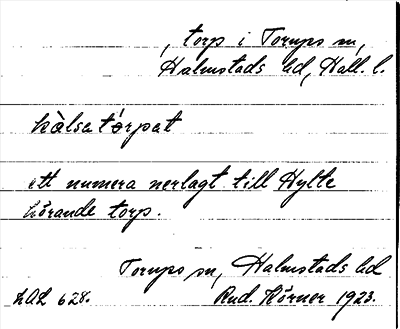 , torp i Torups sn,
Halmstads hd, Hall. l.
hälsatórpat
ett numera nerlagt till Hylte
hörande torp.
Torups sn, Halmstads hd
LAL 628. Rud. Hörner 1923.